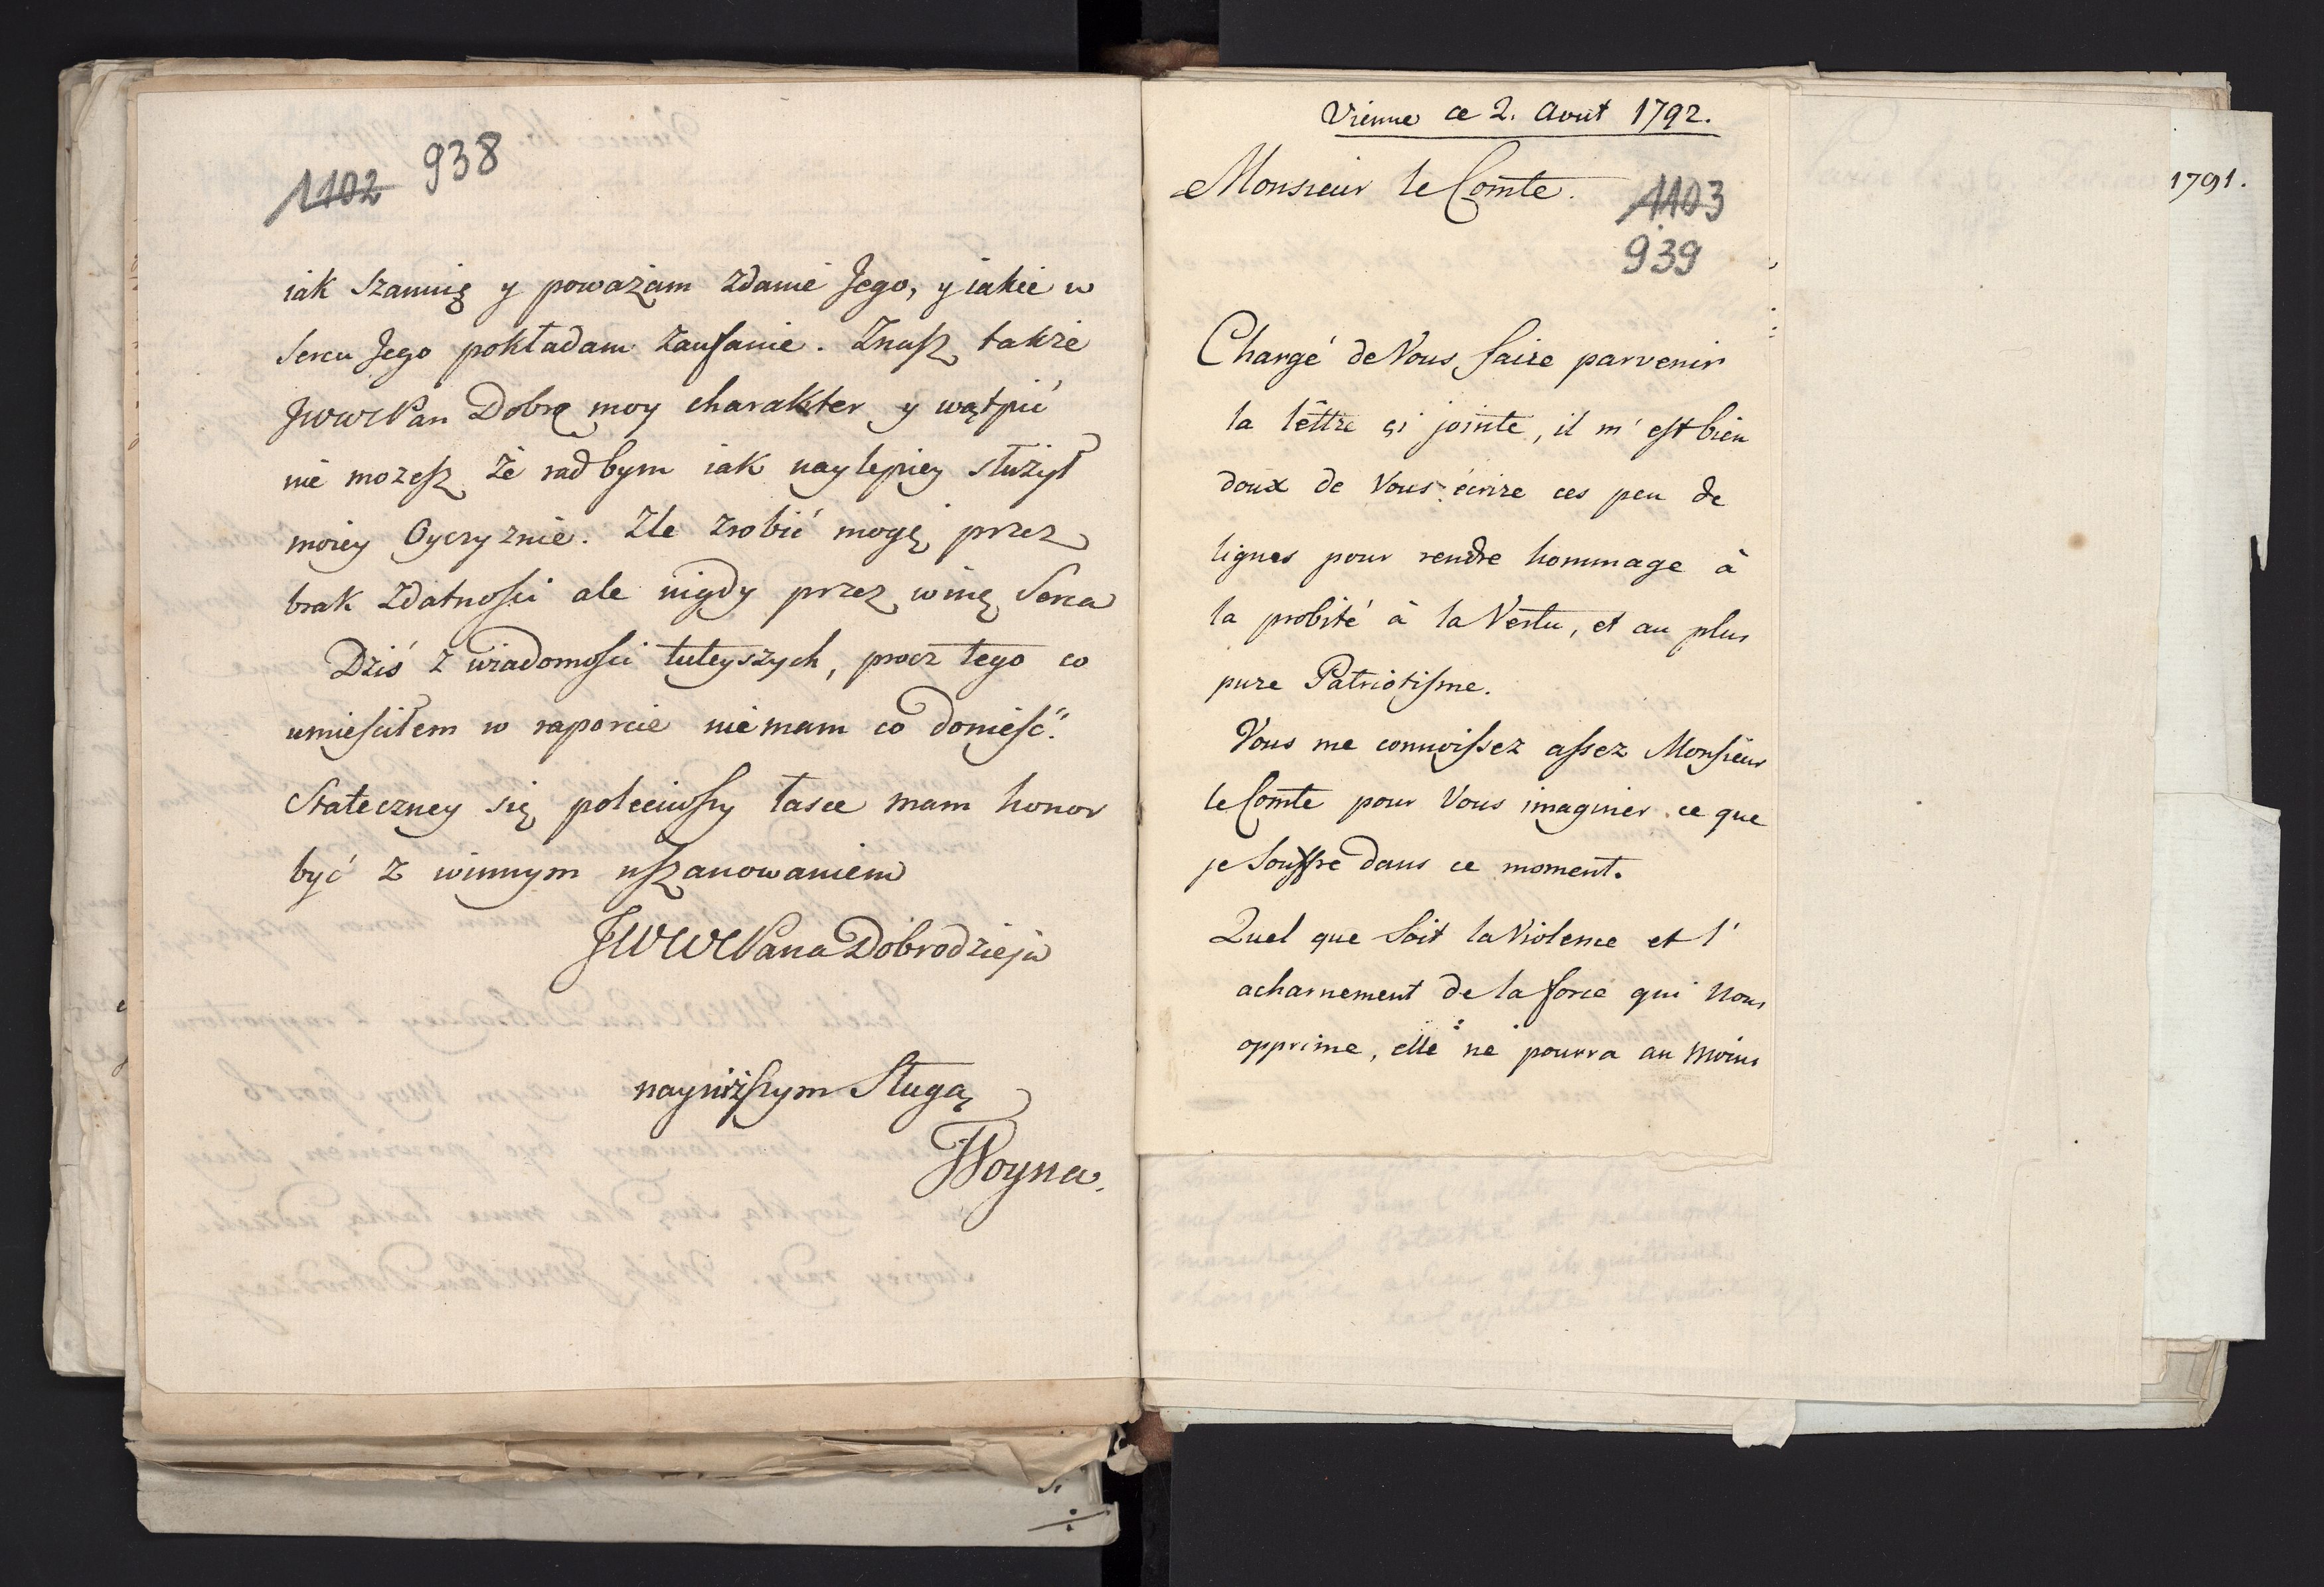 1102 938
iak szanuię y poważam zdanie Jego, y iakie w
sercu Jego pokładam zaufanie. Znasz także
JWWPan Dobrę moy charakter y wątpić
nie możesz że radbym iak naylepiey służył
moiey Oyczyznie. Zle zrobić mogę przez
brak zdatności ale nigdy przez winę Serca
Dziś z wiadomości tuteyszych, procz tego co
umieściłem w raporcie nie mam co donieść.
Stateczney się poleciwszy łasce mam honor
być z winnym uszanowaniem
JWWPana Dobrodzieja
nayniższym Sługą
Woyna.
Vienne ce 2. Avût 1792.
Monsieur le Comte.
1103
939
Chargé de Vous faire parvenir
la lêttre çi jointe, il m'est bien
doux de Vous écrire ces peu de
lignes pour rendre hommage à
la probité à la Vertu, et au plus
pure Patriotisme.
Vous me connoissez assez Monsieur
le Comte pour Vous imaginer ce que
je souffre dans ce moment.
Quel que soit la Violence et l'
acharnement de la force qui nous
opprime, elle ne pourra au moins
1791.